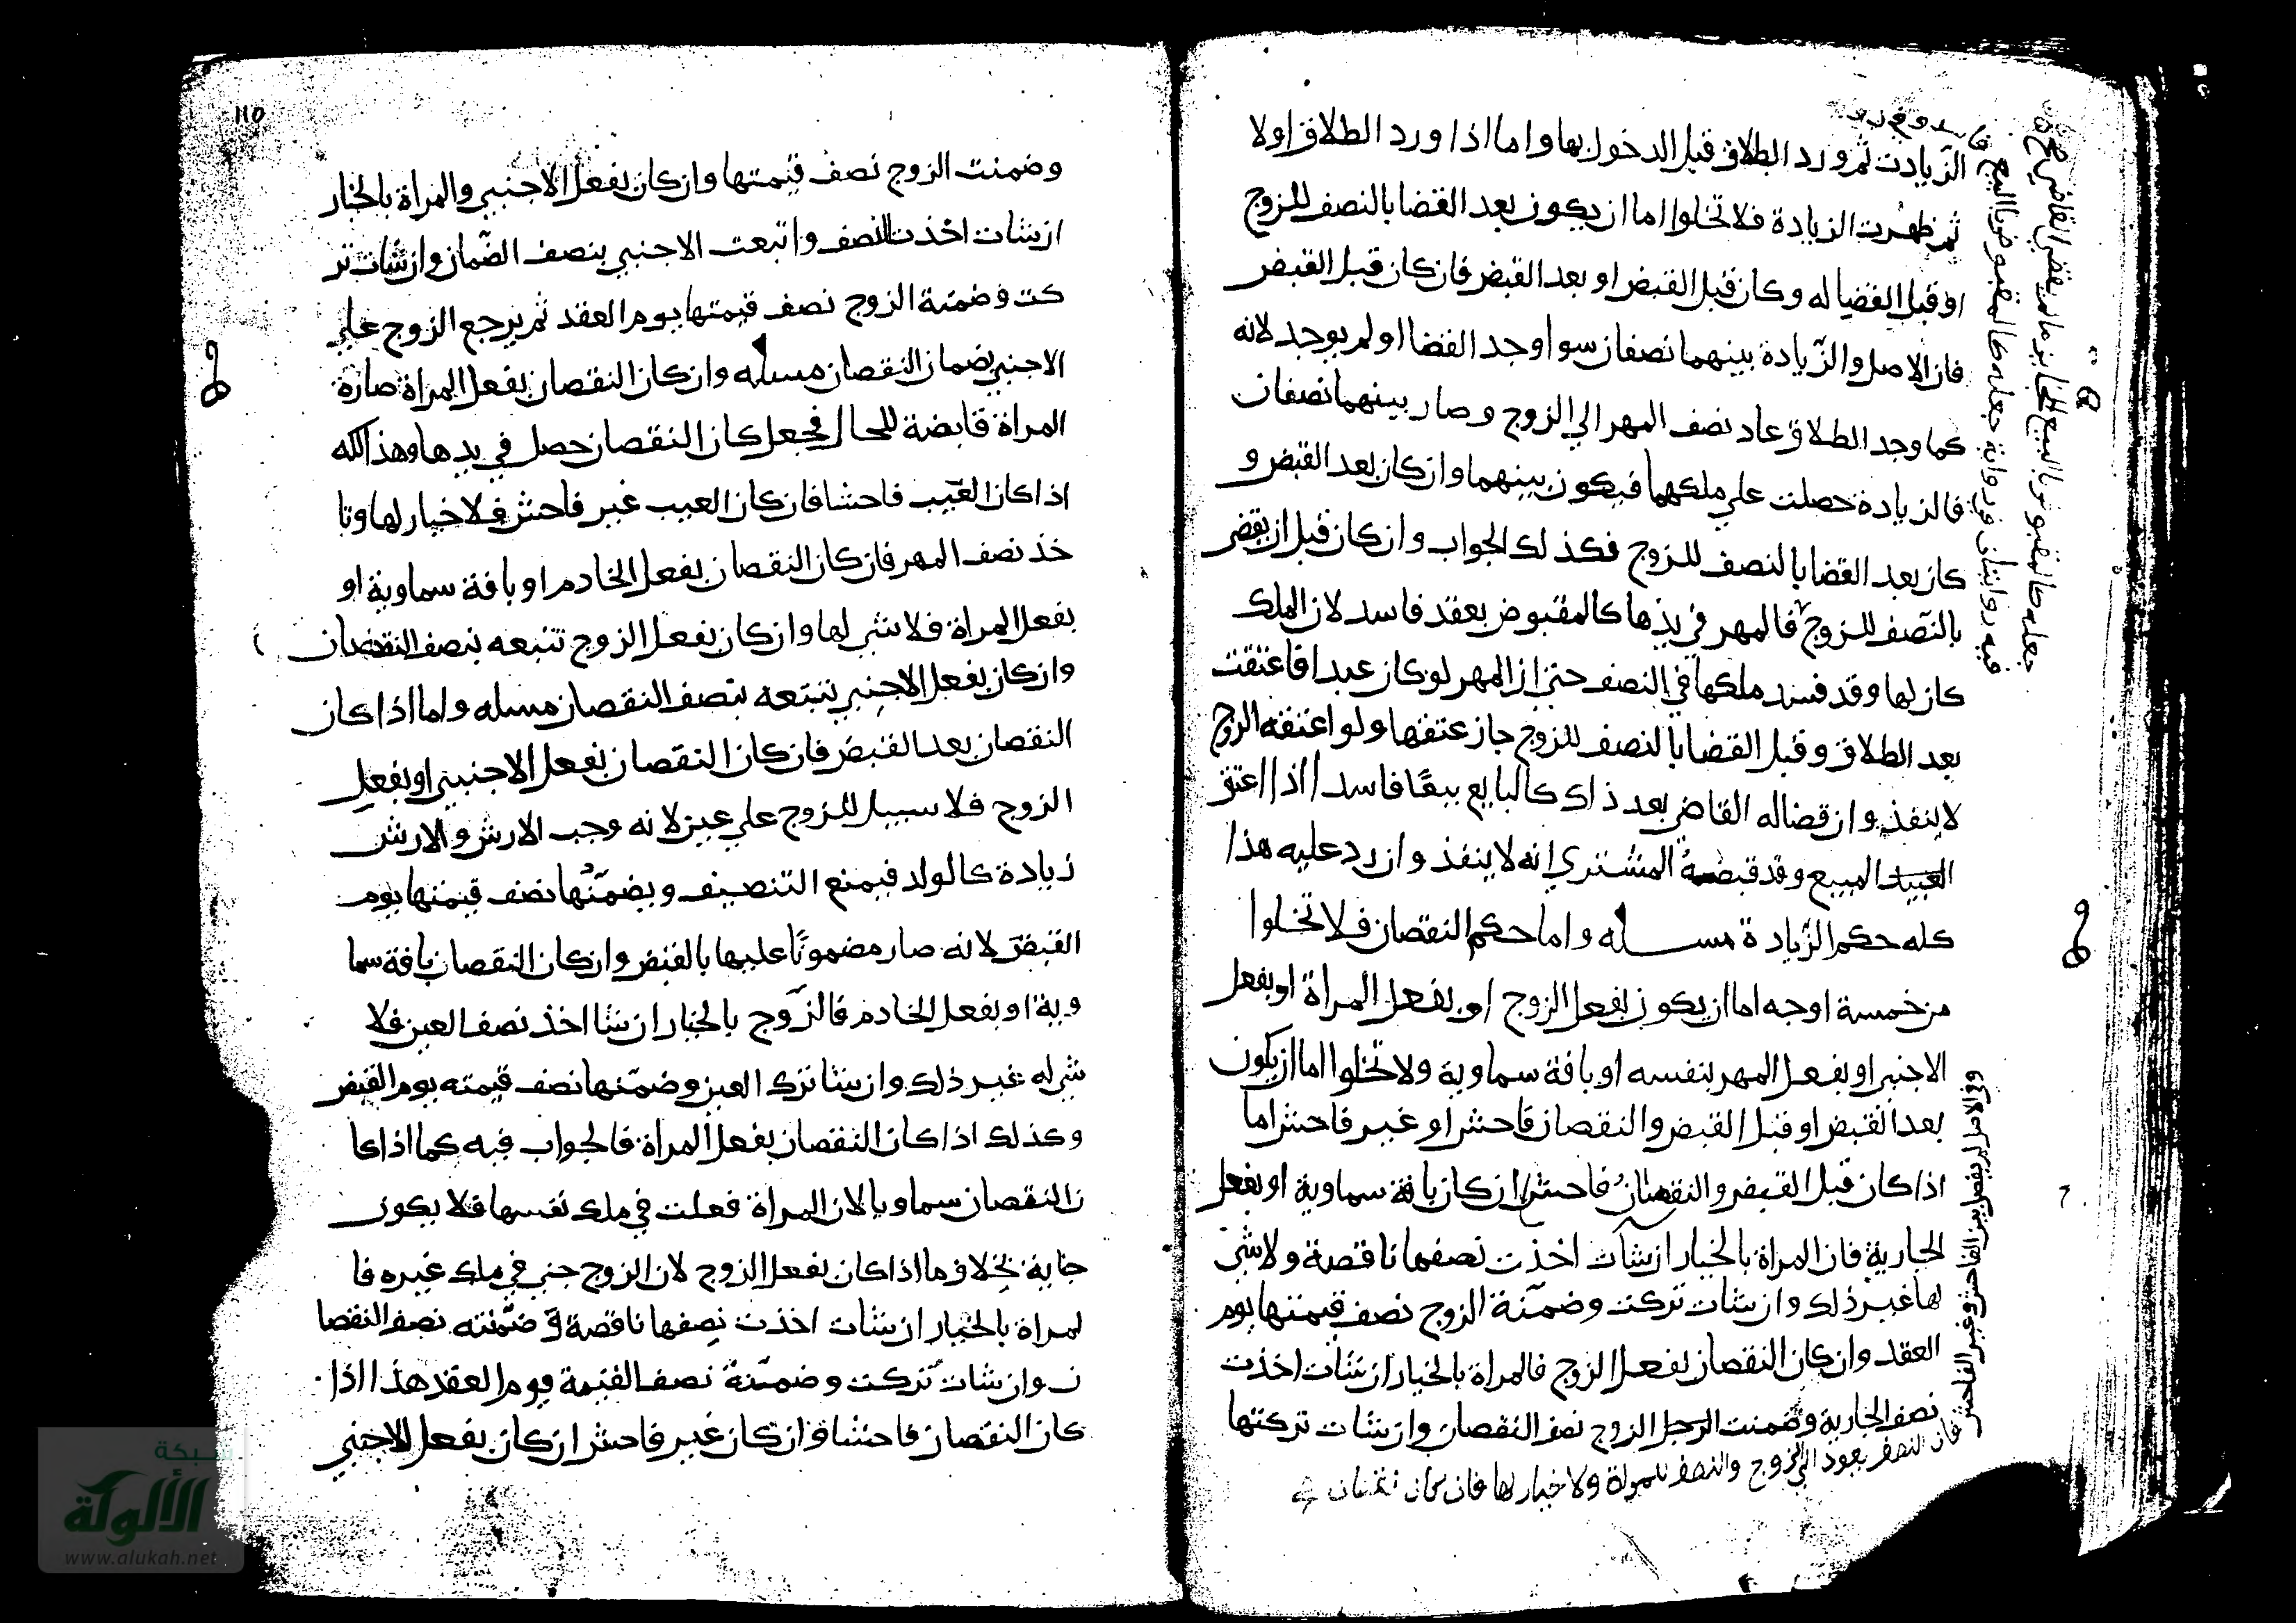 الزيادت ثم ورد الطلاق قبل الدخول بها واما اذا ورد الطلاق اولا
ثم ظهرت الزيادة فلا تخلوا اما ان يكون بعد القضا بالنصف للزوج
او قبل القضا له وكان قبل القبض او بعد القبض فان كان قبل القبض
فان الاصل والزيادة بينهما نصفان سوا وجد القضا او لم يوجد لانه
كما وجد الطلاق عاد نصف المهر الي الزوج وصار بينهما نصفان
فالزيادة حصلت علي ملكهما فيكون بينهما وان كان بعد القبض و
كان بعد القضا بالنصف للزوج فكذلك الجواب وان كان قبل ان يقضي
بالنصف للزوج فالمهر في يدها كالمقبوض بعقد فاسد لان الملك
كان لها وقد فسد ملكها في النصف حتي ان المهر لو كان عبدا فاعتقت
بعد الطلاق وقبل القضا بالنصف للزوج جاز عتقها ولو اعتقه الزوج
لا ينفذ وان قضا له القاضي بعد ذلك كالبايع بيعًا فاسدا اذا اعتق
العبد المبيع وقد قبضه المشتري انه لا ينفذ وان رد عليه هذا
كله حكم الزيادة مسله واما حكم النقصان فلا تخلوا
من خمسة اوجه اما ان يكون بفعل الزوج او بفعل المراة او بفعل
الاجنبي او بفعل المهر بنفسه او بافة سماوية ولا تخلوا اما ان يكون
بعد القبض او قبل القبض والنقصان فاحش او غير فاحش اما
اذا كان قبل القبض والنقصان فاحش ان كان بافة سماوية او بفعل
الجارية فان المراة بالخيار ان شات اخذت نصفها ناقصة ولا شي
لها غير ذلك وان شات تركت وضمنة الزوج نصف قيمتها يوم
العقد وان كان النقصان بفعل الزوج فالمراة بالخيار ان شات اخذت
نصف الجارية وضمنت الرجل الزوج نصف النقصان وان شات تركتها
فان النصف يعود الي الزوج والنصف للمراة ولا خيار لها فان كان
وفي الاصل لم يفصل بين الفاحش وغير الفاحش
١١٥
وضمنت الزوج نصف قيمتها وان كان بفعل الاجنبي والمراة بالخيار
ان شات اخذت النصف واتبعت الاجنبي بنصف الضمان وان شات تر
كت وضمنة الزوج نصف قيمتها يوم العقد ثم يرجع الزوج علي
الاجنبي بضمان النقصان مسله وان كان النقصان بفعل المراة صارة
المراة قابضة للحال فجعل كان النقصان حصل في يدها وهذا كله
اذا كان العيب فاحشا فان كان العيب غير فاحش فلا خيار لها وتا
خذ نصف المهر فان كان النقصان بفعل الخادم او بافة سماوية او
بفعل المراة فلا شي لها وان كان بفعل الزوج تتبعه بنصف النقصان
وان كان بفعل الاجنبي تتبعه بنصف النقصان مسله واما اذا كان
النقصان بعد القبض فان كان النقصان بفعل الاجنبي او بفعل
الزوج فلا سبيل للزوج علي عين لانه وجب الارش والارش
زيادة كالولد فيمنع التنصيف ويضمنها نصف قيمتها يوم
القبض لانه صار مضمونًا عليها بالقبض وان كان النقصان بافة سما
وية او بفعل الخادم فالزوج بالخيار ان شا اخذ نصف العين فلا
شي له غير ذلك وان شا ترك العين وضمنها نصف قيمته يوم القبض
وكذلك اذا كان النقصان بفعل المراة فالجواب فيه كما اذا كا
ن النقصان سماويا لان المراة فعلت في ملك نفسها فلا يكون
جناية بخلاف ما اذا كان بفعل الزوج لان الزوج جني في ملك غيره فا
لمراة بالخيار ان شات اخذت نصفها ناقصة و ضمنته نصف النقصا
ن وان شات تركت وضمنة نصف القيمة يوم العقد هذا اذا
كان النقصان فاحشا وان كان غير فاحش ان كان بفعل الاجنبي
شبكة
الألوكة
www.alukah.net